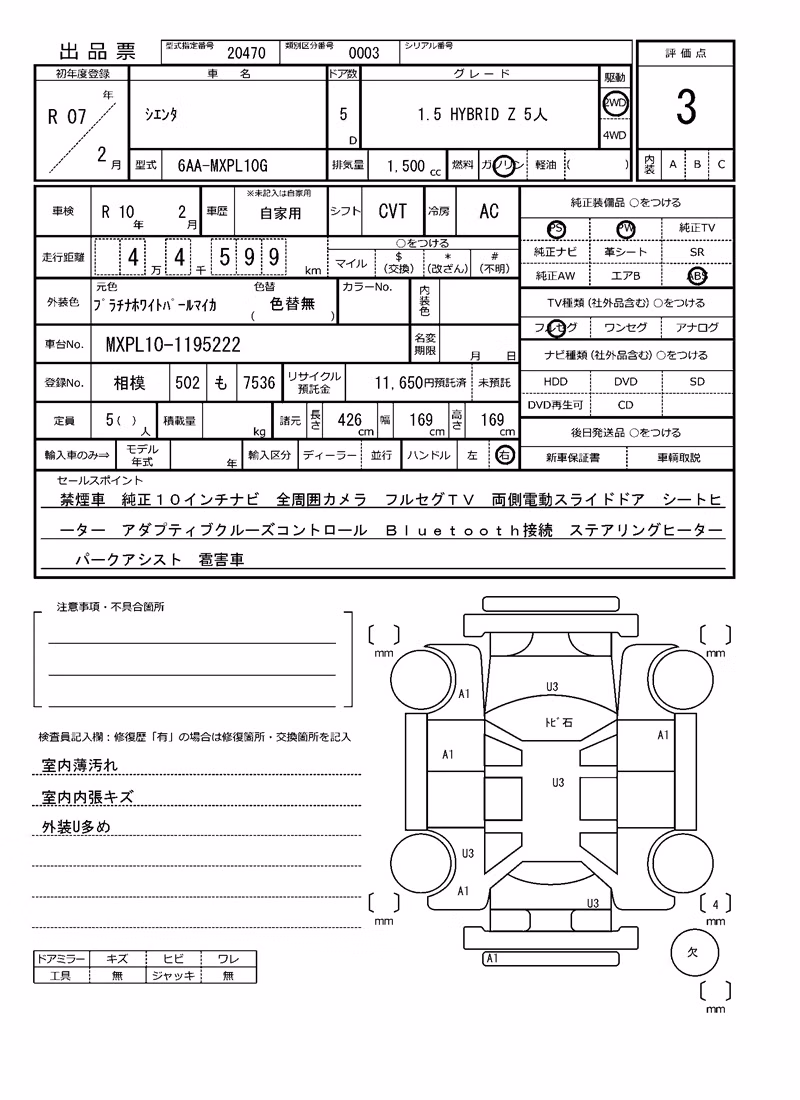 出品票 型式指定番号 20470 類別区分番号 0003 シリアル番号
評価点
初年度登録 車名 ドア数 グレード 駆動
R 07 年 2 月 シエンタ 5 D 1.5 HYBRID Z 5人 2WD 4WD
3
型式 6AA-MXPL10G 排気量 1,500 cc 燃料 ガソリン 軽油 ( )
内装 A B C
車検 R 10 年 2 月 車歴 ※未記入は自家用 自家用 シフト CVT 冷房 AC
走行距離 4 万 4 千 5 9 9 km ○をつける マイル $(交換) *(改ざん) #(不明)
外装色 元色 プラチナホワイトパールマイカ 色替 ( 色替無 ) カラーNo. 内装色
車台No. MXPL10-1195222 名変期限 月 日
登録No. 相模 502 も 7536 リサイクル預託金 11,650円預託済 未預託
定員 5( ) 人 積載量 kg 諸元 長さ 426 cm 幅 169 cm 高さ 169 cm
輸入車のみ⇒ モデル年式 年 輸入区分 ディーラー 並行 ハンドル 左 右
純正装備品 ○をつける
PS PW 純正TV
純正ナビ 革シート SR
純正AW エアB ABS
TV種類(社外品含む)○をつける
フルセグ ワンセグ アナログ
ナビ種類(社外品含む)○をつける
HDD DVD SD
DVD再生可 CD
後日発送品 ○をつける
新車保証書 車輌取説
セールスポイント
禁煙車 純正10インチナビ 全周囲カメラ フルセグTV 両側電動スライドドア シートヒ
ーター アダプティブクルーズコントロール Bluetooth接続 ステアリングヒーター
パークアシスト 雹害車
注意事項・不具合箇所
検査員記入欄:修復歴「有」の場合は修復箇所・交換箇所を記入
室内薄汚れ
室内内張キズ
外装U多め
ドアミラー キズ ヒビ ワレ
工具 無 ジャッキ 無
mm mm
A1 U3
トビ石 A1
A1
U3
U3
A1
U3
4
mm mm
A1 欠
mm